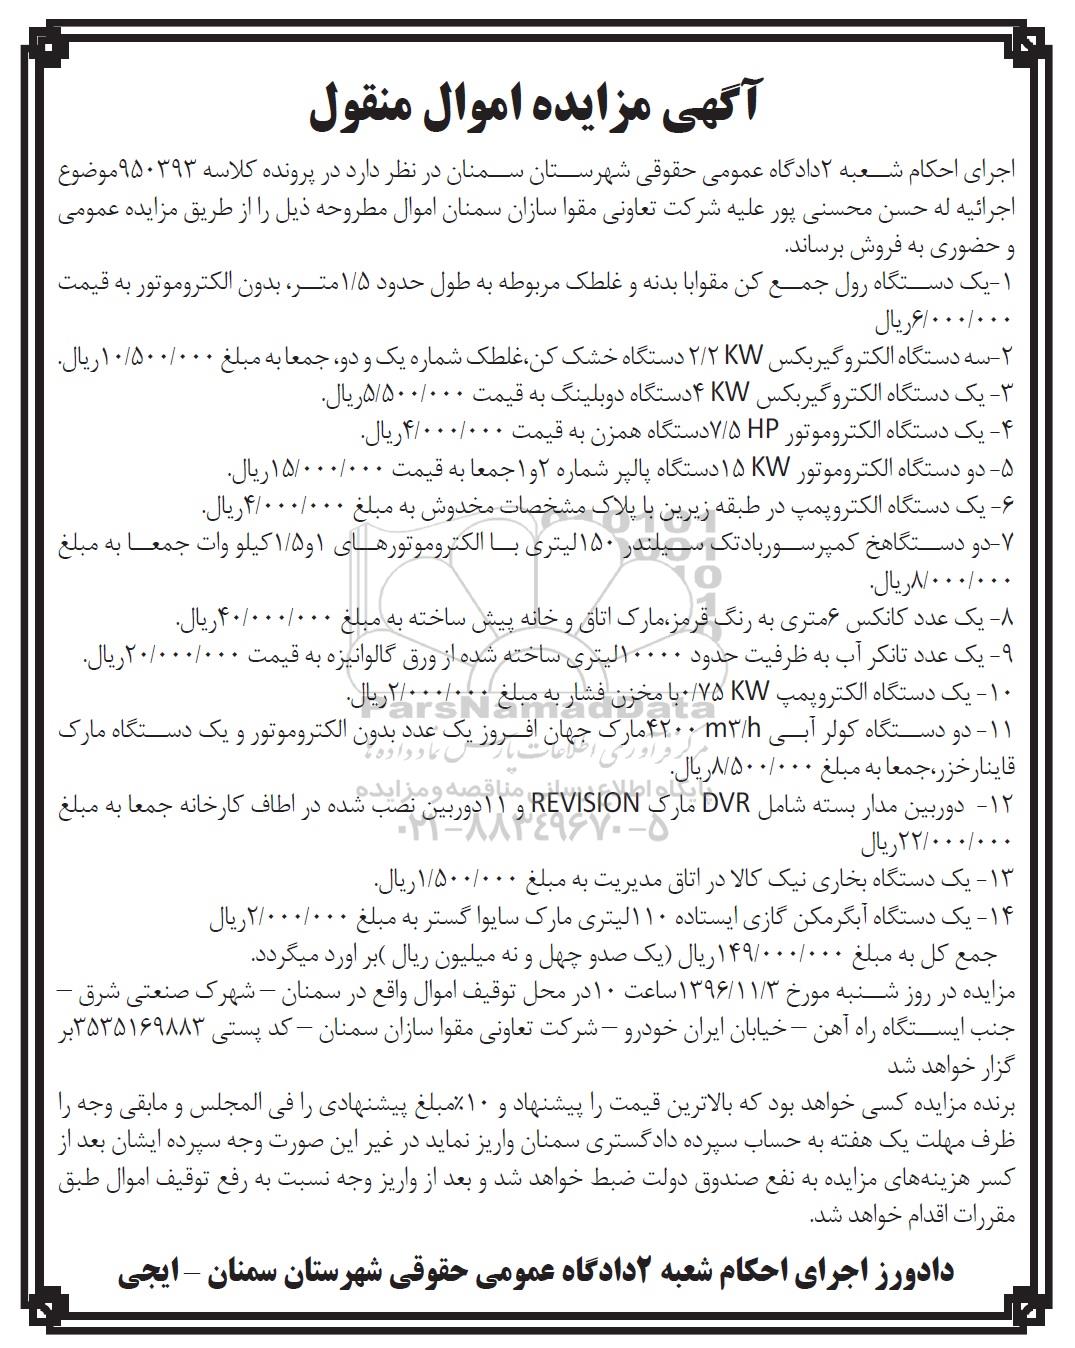 آگهی مزایده اموال منقول
اجرای احکام شعبه ۲دادگاه عمومی حقوقی شهرستان سمنان در نظر دارد در پرونده کلاسه ۹۵۰۳۹۳موضوع
اجرائیه له حسن محسنی پور علیه شرکت تعاونی مقوا سازان سمنان اموال مطروحه ذیل را از طریق مزایده عمومی
و حضوری به فروش برساند.
۱-یک دستگاه رول جمع کن مقوابا بدنه و غلطک مربوطه به طول حدود ۱/۵متر، بدون الکتروموتور به قیمت
۶/۰۰۰/۰۰۰ریال
۲-سه دستگاه الکتروگیربکس ۲/۲ KW دستگاه خشک کن،غلطک شماره یک و دو، جمعا به مبلغ ۱۰/۵۰۰/۰۰۰ریال.
۳- یک دستگاه الکتروگیربکس ۴ KWدستگاه دوبلینگ به قیمت ۵/۵۰۰/۰۰۰ریال.
۴- یک دستگاه الکتروموتور ۷/۵ HPدستگاه همزن به قیمت ۴/۰۰۰/۰۰۰ریال.
۵- دو دستگاه الکتروموتور ۱۵ KWدستگاه پالپر شماره ۲و۱جمعا به قیمت ۱۵/۰۰۰/۰۰۰ریال.
۶- یک دستگاه الکتروپمپ در طبقه زیرین با پلاک مشخصات مخدوش به مبلغ ۴/۰۰۰/۰۰۰ریال.
۷-دو دستگاهخ کمپرسوربادتک سیلندر ۱۵۰لیتری با الکتروموتورهای ۱و۱/۵کیلو وات جمعا به مبلغ
۸/۰۰۰/۰۰۰ریال.
۸- یک عدد کانکس ۶متری به رنگ قرمز،مارک اتاق و خانه پیش ساخته به مبلغ ۴۰/۰۰۰/۰۰۰ریال.
۹- یک عدد تانکر آب به ظرفیت حدود ۱۰۰۰۰لیتری ساخته شده از ورق گالوانیزه به قیمت ۲۰/۰۰۰/۰۰۰ریال.
۱۰- یک دستگاه الکتروپمپ ۰/۷۵ KWبا مخزن فشار به مبلغ ۲/۰۰۰/۰۰۰ریال.
ParsNamadData
۱۱- دو دستگاه کولر آبی ۴۲۰۰ m۳/hمارک جهان افروز یک عدد بدون الکتروموتور و یک دستگاه مارک
مرکز فرآوری اطلاعات پارس نماد داده ها
قاینارخزر،جمعا به مبلغ ۸/۵۰۰/۰۰۰ریال.
پایگاه اطلاع رسانی مناقصه و مزایده
۱۲- دوربین مدار بسته شامل DVR مارک REVISION و ۱۱دوربین نصب شده در اطاف کارخانه جمعا به مبلغ
۰۲۱-۸۸۳۴۹۶۷۰-۵
۲۲/۰۰۰/۰۰۰ریال
۱۳- یک دستگاه بخاری نیک کالا در اتاق مدیریت به مبلغ ۱/۵۰۰/۰۰۰ریال.
۱۴- یک دستگاه آبگرمکن گازی ایستاده ۱۱۰لیتری مارک سایوا گستر به مبلغ ۲/۰۰۰/۰۰۰ریال
جمع کل به مبلغ ۱۴۹/۰۰۰/۰۰۰ریال (یک صدو چهل و نه میلیون ریال )بر اورد میگردد.
مزایده در روز شنبه مورخ ۱۳۹۶/۱۱/۳ساعت ۱۰در محل توقیف اموال واقع در سمنان – شهرک صنعتی شرق –
جنب ایستگاه راه آهن – خیابان ایران خودرو – شرکت تعاونی مقوا سازان سمنان – کد پستی ۳۵۳۵۱۶۹۸۸۳بر
گزار خواهد شد
برنده مزایده کسی خواهد بود که بالاترین قیمت را پیشنهاد و ۱۰٪مبلغ پیشنهادی را فی المجلس و مابقی وجه را
ظرف مهلت یک هفته به حساب سپرده دادگستری سمنان واریز نماید در غیر این صورت وجه سپرده ایشان بعد از
کسر هزینه‌های مزایده به نفع صندوق دولت ضبط خواهد شد و بعد از واریز وجه نسبت به رفع توقیف اموال طبق
مقررات اقدام خواهد شد.
دادورز اجرای احکام شعبه ۲دادگاه عمومی حقوقی شهرستان سمنان – ایجی